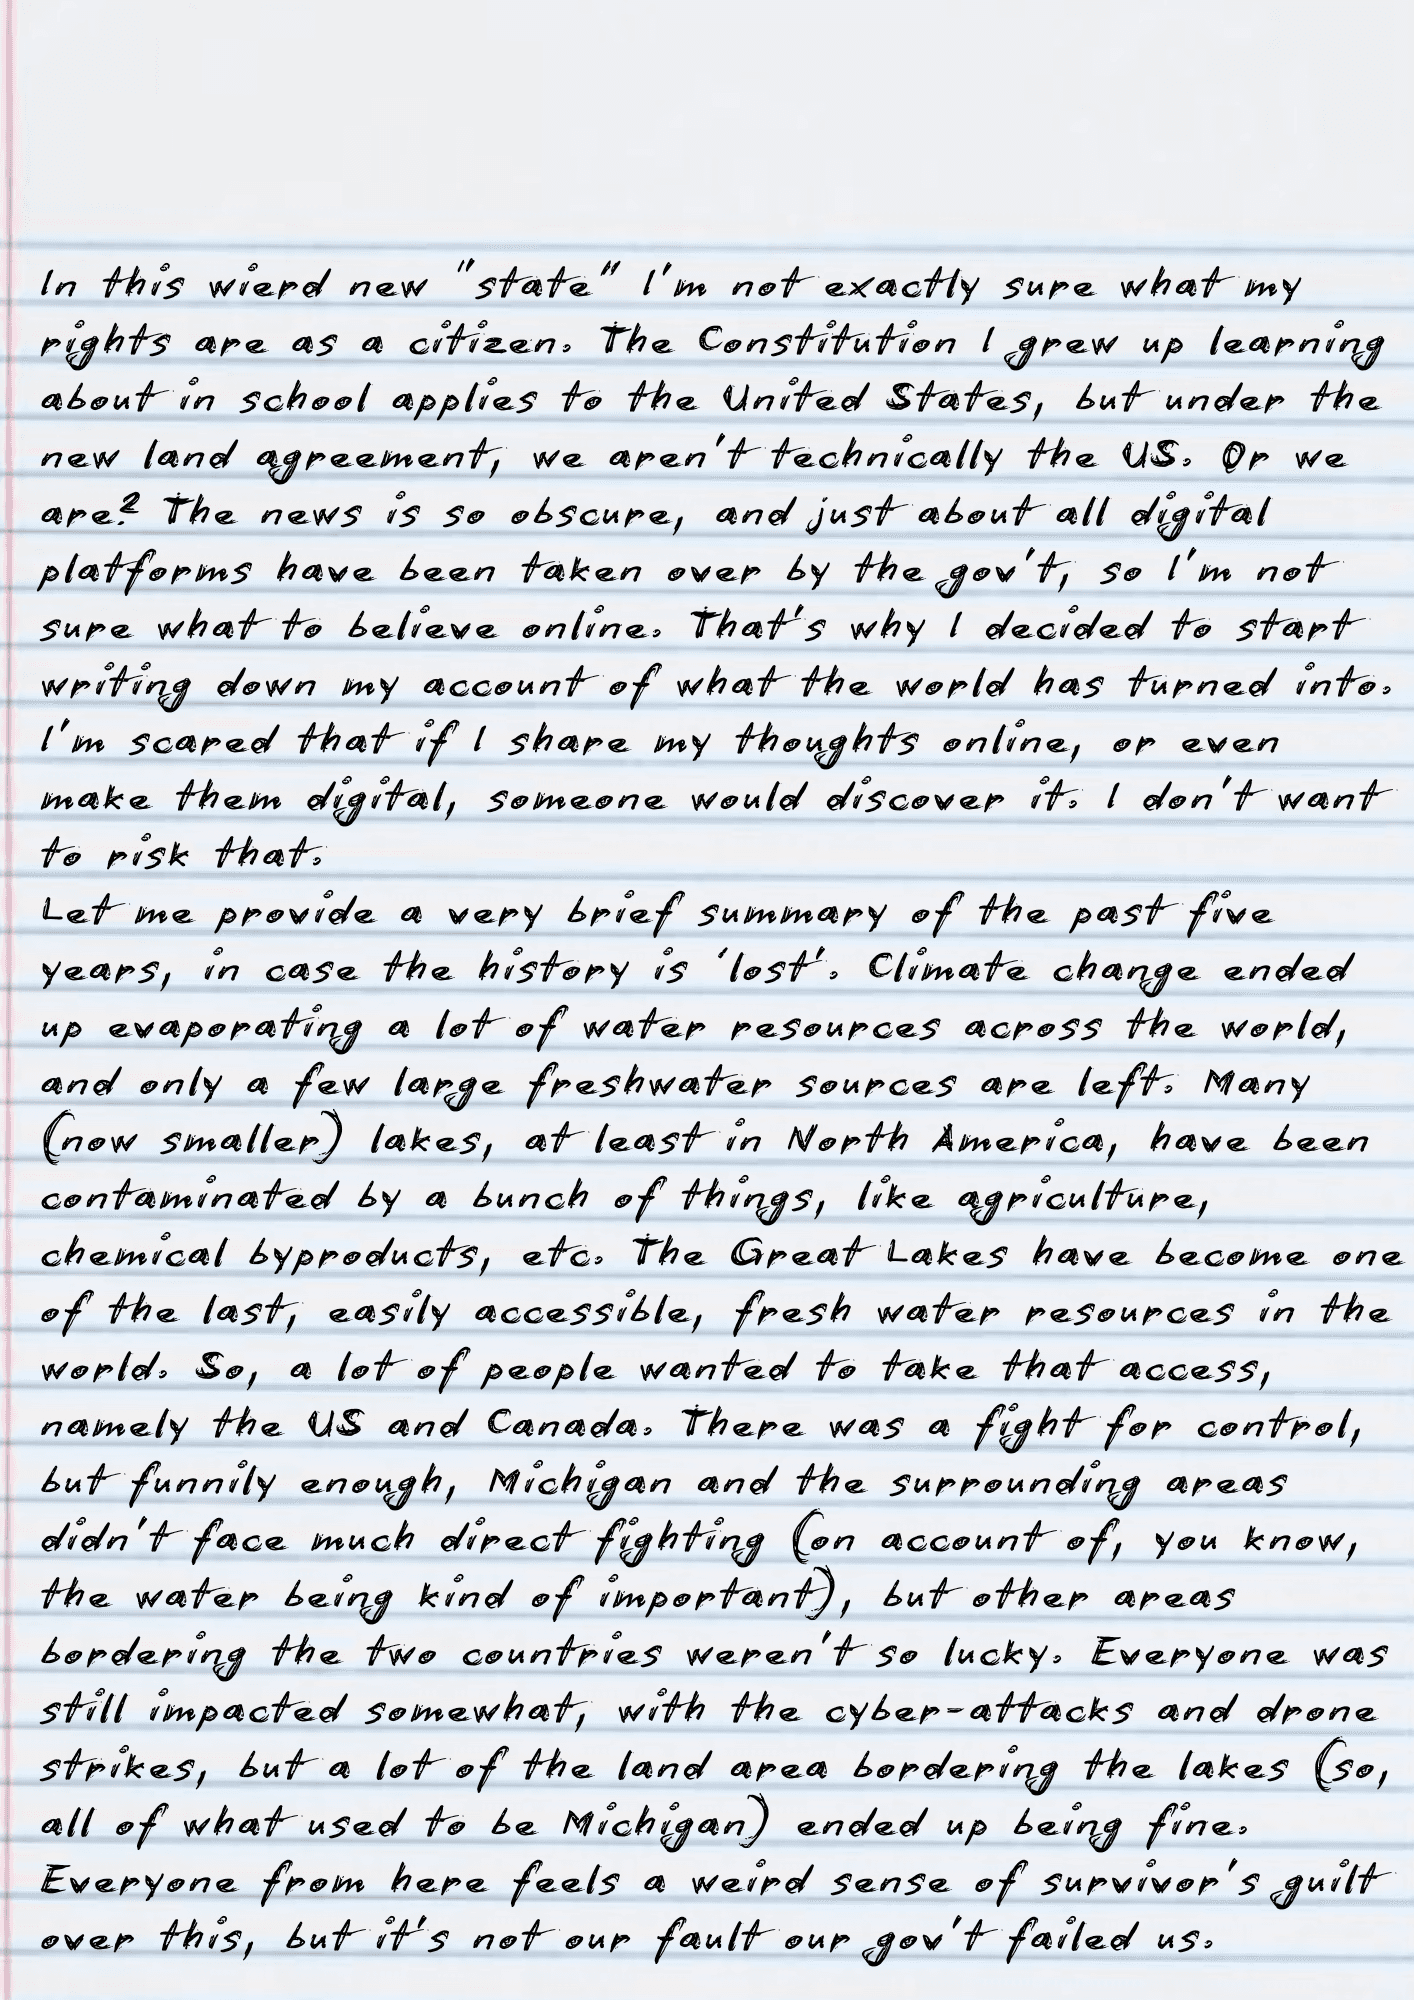 In this wierd new "state" I'm not exactly sure what my
rights are as a citizen. The Constitution I grew up learning
about in school applies to the United States, but under the
new land agreement, we aren't technically the US. Or we
are? The news is so obscure, and just about all digital
platforms have been taken over by the gov't, so I'm not
sure what to believe online. That's why I decided to start
writing down my account of what the world has turned into.
I'm scared that if I share my thoughts online, or even
make them digital, someone would discover it. I don't want
to risk that.
Let me provide a very brief summary of the past five
years, in case the history is 'lost'. Climate change ended
up evaporating a lot of water resources across the world,
and only a few large freshwater sources are left. Many
(now smaller) lakes, at least in North America, have been
contaminated by a bunch of things, like agriculture,
chemical byproducts, etc. The Great Lakes have become one
of the last, easily accessible, fresh water resources in the
world. So, a lot of people wanted to take that access,
namely the US and Canada. There was a fight for control,
but funnily enough, Michigan and the surrounding areas
didn't face much direct fighting (on account of, you know,
the water being kind of important), but other areas
bordering the two countries weren't so lucky. Everyone was
still impacted somewhat, with the cyber-attacks and drone
strikes, but a lot of the land area bordering the lakes (so,
all of what used to be Michigan) ended up being fine.
Everyone from here feels a weird sense of survivor's guilt
over this, but it's not our fault our gov't failed us.